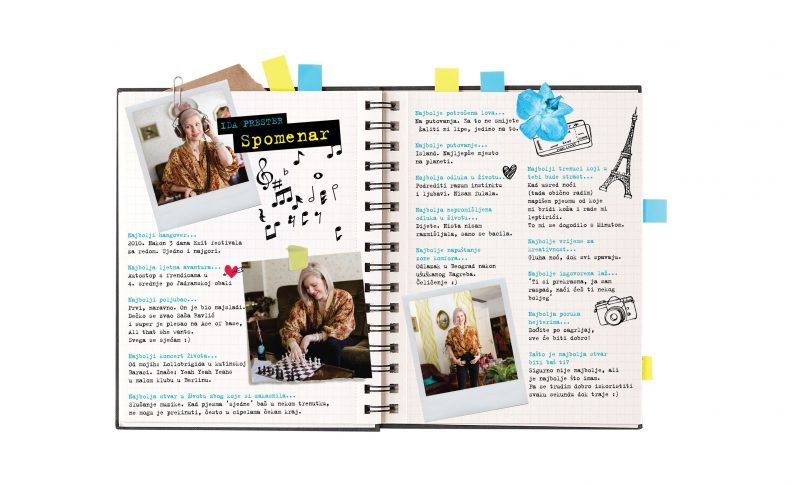 IDA PRESTER
Spomenar
Najbolji hangover...
2010. Nakon 3 dana Exit festivala
za redom. Ujedno i najgori.
Najbolja ljetna avantura...
Autostop s frendicama u
4. srednje po Jadranskoj obali
Najbolji poljubac...
Prvi, naravno. On je bio najslađi.
Dečko se zvao Saša Pavlić
i super je plesao na Ace of base,
All that she wants.
Svega se sjećam :)
Najbolji koncert života...
Od mojih: Lollobrigida u kutinskoj
Baraci. Inače: Yeah Yeah Yeahs
u malom klubu u Berlinu.
Najbolja stvar u životu zbog koje si zakasnila...
Slušanje muzike. Kad pjesma 'sjedne' baš u nekom trenutku,
ne mogu je prekinuti, često u cipelama čekam kraj.
Najbolje potrošena lova...
Na putovanja. Za to ne smijete
žaliti ni lipe, jedino na to.
Najbolje putovanje...
Island. Najljepše mjesto
na planeti.
Najbolja odluka u životu...
Podrediti razum instinktu
i ljubavi. Nisam fulala.
Najbolja nepromišljena
odluka u životu...
Dijete. Ništa nisam
razmišljala, samo se bacila.
Najbolje napuštanje
zone komfora...
Odlazak u Beograd nakon
ušuškanog Zagreba.
Čeličenje ;)
Najbolji trenuci koji u
tebi bude strast...
Kad usred noći
(tada obično radim)
napišem pjesmu od koje
mi bridi koža i rade mi
leptirići.
To mi se dogodilo s Minutom.
Najbolje vrijeme za
kreativnost...
Gluha noć, dok svi spavaju.
Najbolje izgovorena laž...
'Ti si prekrasna, ja sam
raspad, naći ćeš ti nekog
boljeg'
Najbolja poruka
hejterima...
Dođite po zagrljaj,
sve će biti dobro!
Zašto je najbolja stvar
biti baš ti?
Sigurno nije najbolje, ali
je najbolje što imam.
Pa se trudim dobro iskoristiti
svaku sekundu dok traje :)